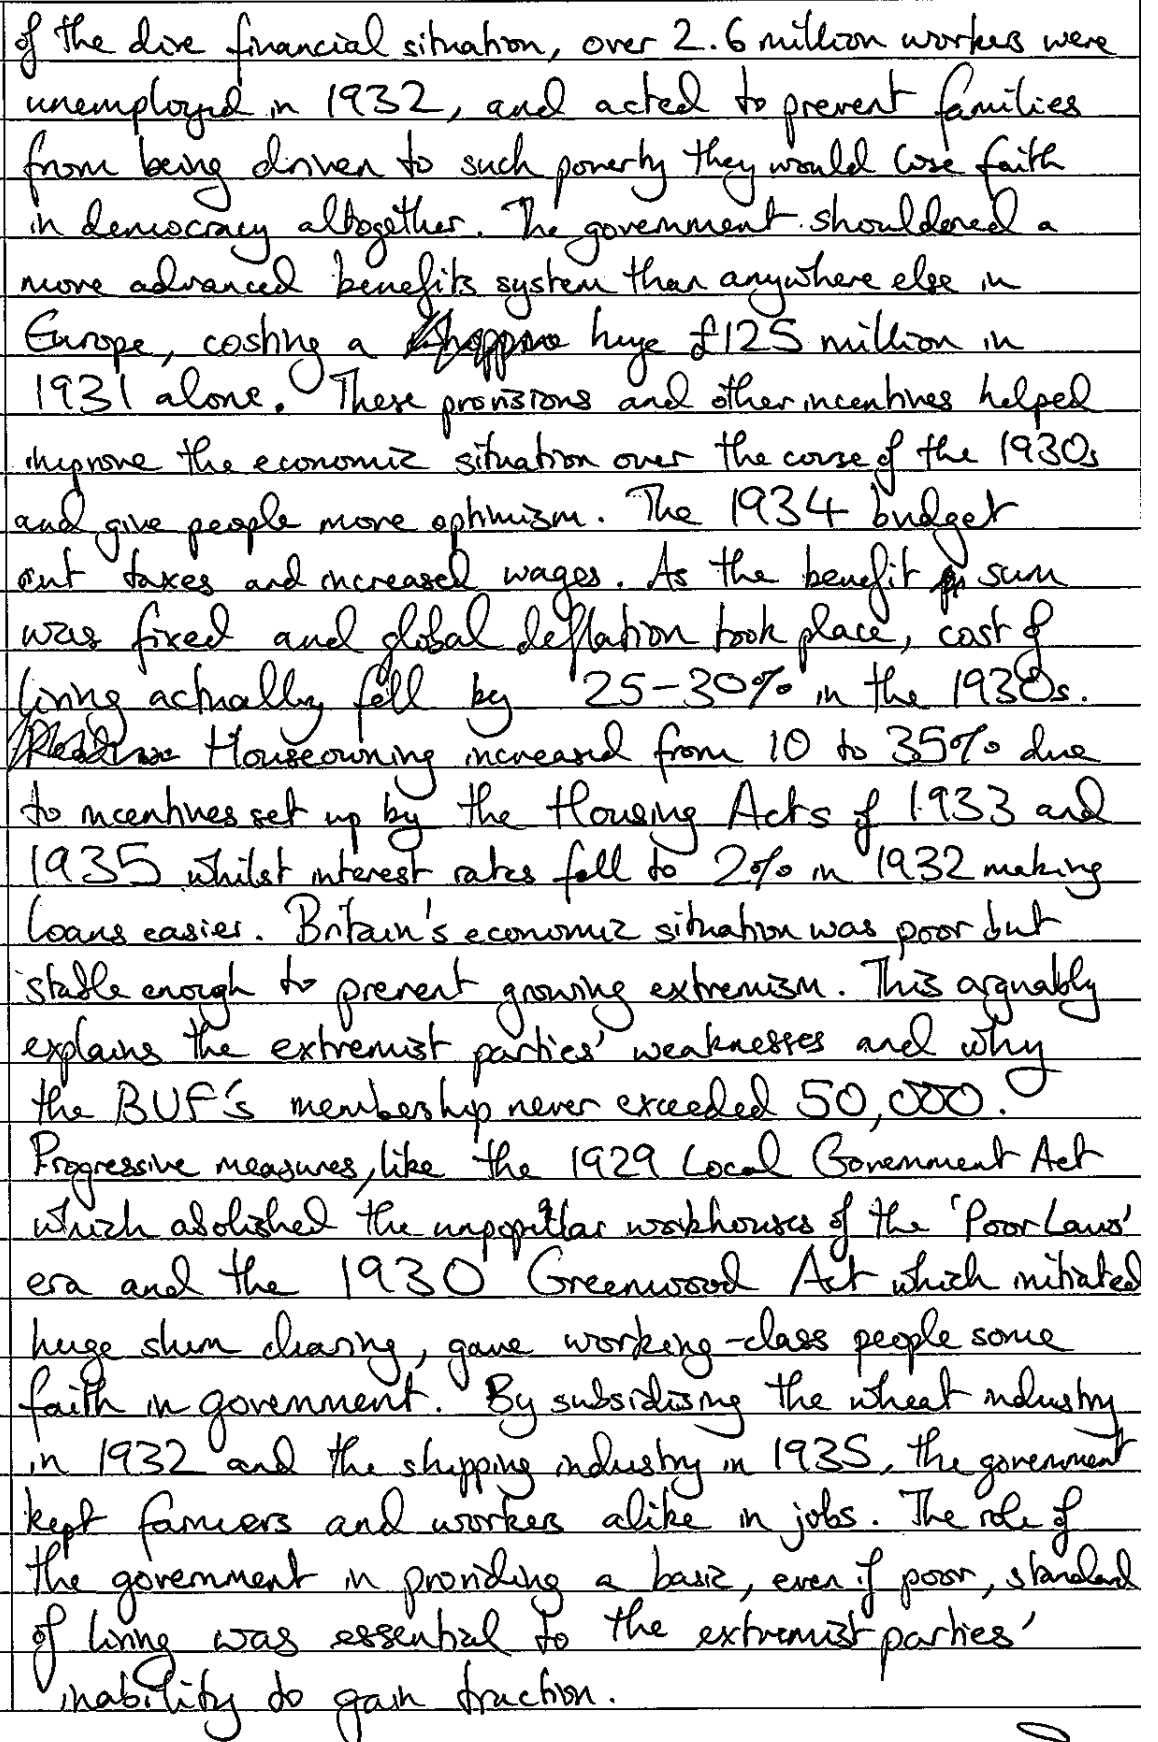 of the dire financial situation, over 2.6 million workers were
unemployed in 1932, and acted to prevent families
from being driven to such poverty they would lose faith
in democracy altogether. The government shouldered a
more advanced benefits system than anywhere else in
Europe, costing a huge £125 million in
1931 alone. These provisions and other incentives helped
improve the economic situation over the course of the 1930s
and give people more optimism. The 1934 budget
cut taxes and increased wages. As the benefit sum
was fixed and global deflation took place, cost of
living actually fell by 25-30% in the 1930s.
Houseowning increased from 10 to 35% due
to incentives set up by the Housing Acts of 1933 and
1935 whilst interest rates fell to 2% in 1932 making
loans easier. Britain's economic situation was poor but
stable enough to prevent growing extremism. This arguably
explains the extremist parties' weaknesses and why
the BUF's membership never exceeded 50,000.
Progressive measures, like the 1929 Local Government Act
which abolished the unpopular workhouses of the 'Poor Laws'
era and the 1930 Greenwood Act which initiated
huge slum clearing, gave working-class people some
faith in government. By subsidising the wheat industry
in 1932 and the shipping industry in 1935, the government
kept farmers and workers alike in jobs. The role of
the government in providing a basic, even if poor, standard
of living was essential to the extremist parties'
inability to gain traction.